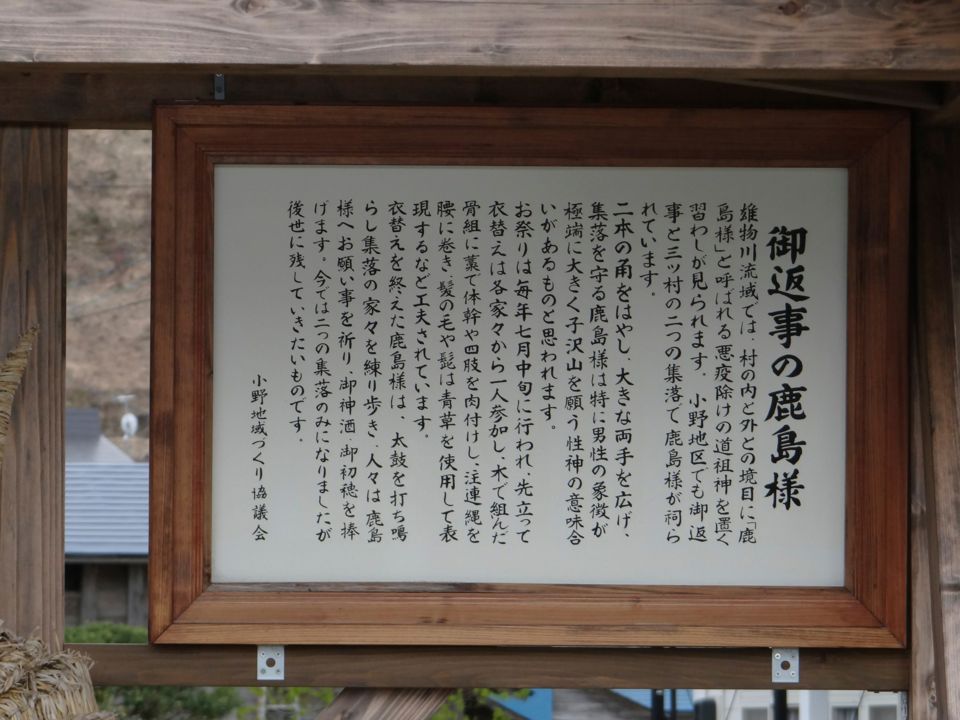 御返事の鹿島様
雄物川流域では、村の内と外との境目に「鹿
島様」と呼ばれる悪疫除けの道祖神を置く
習わしが見られます。小野地区でも御返
事と三ツ村の二つの集落で鹿島様が祠ら
れています。
二本の角をはやし、大きな両手を広げ、
集落を守る鹿島様は特に男性の象徴が
極端に大きく子沢山を願う性神の意味合
いがあるものと思われます。
お祭りは毎年七月中旬に行われ、先立って
衣替えは各家々から一人参加し、木で組んだ
骨組に藁で体幹や四肢を肉付けし、注連縄を
腰に巻き、髪の毛や髭は青草を使用して表
現するなど工夫されています。
衣替えを終えた鹿島様は、太鼓を打ち鳴
らし集落の家々を練り歩き、人々は鹿島
様へお願い事を祈り、御神酒、御初穂を捧
げます。今では二つの集落のみになりましたが
後世に残していきたいものです。
小野地域づくり協議会